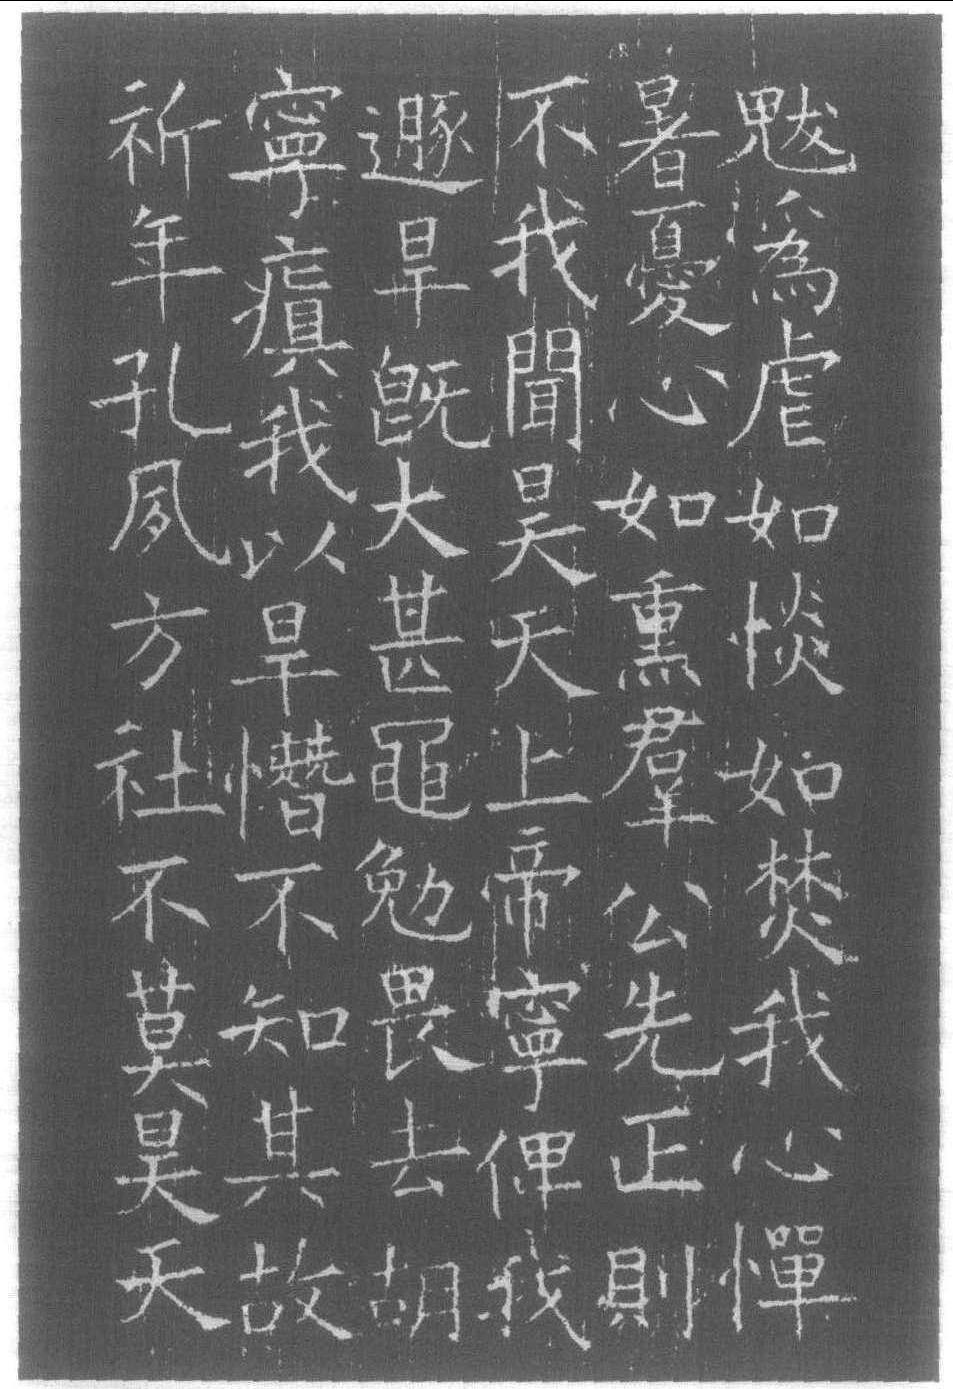 魃為虐如惔如焚我心憚
暑憂心如熏羣公先正則
不我聞昊天上帝寧俾我
遯旱既大甚黽勉畏去胡
寧瘨我以旱憯不知其故
祈年孔夙方社不莫昊天